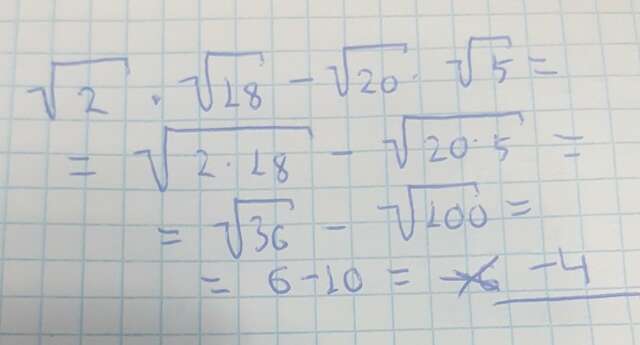 √2 · √18 - √20 · √5 =
= √2·18 - √20·5 =
= √36 - √100 =
= 6-10 = -4